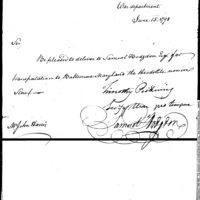 War department
June 15. 1798
Sir
Be pleased to deliver to Samuel Hodgdon Esqr for
transportation to Baltimore Maryland the
Timothy Pickering
Secy War pro tempore
Samuel Hodgdon
Mr John Harris